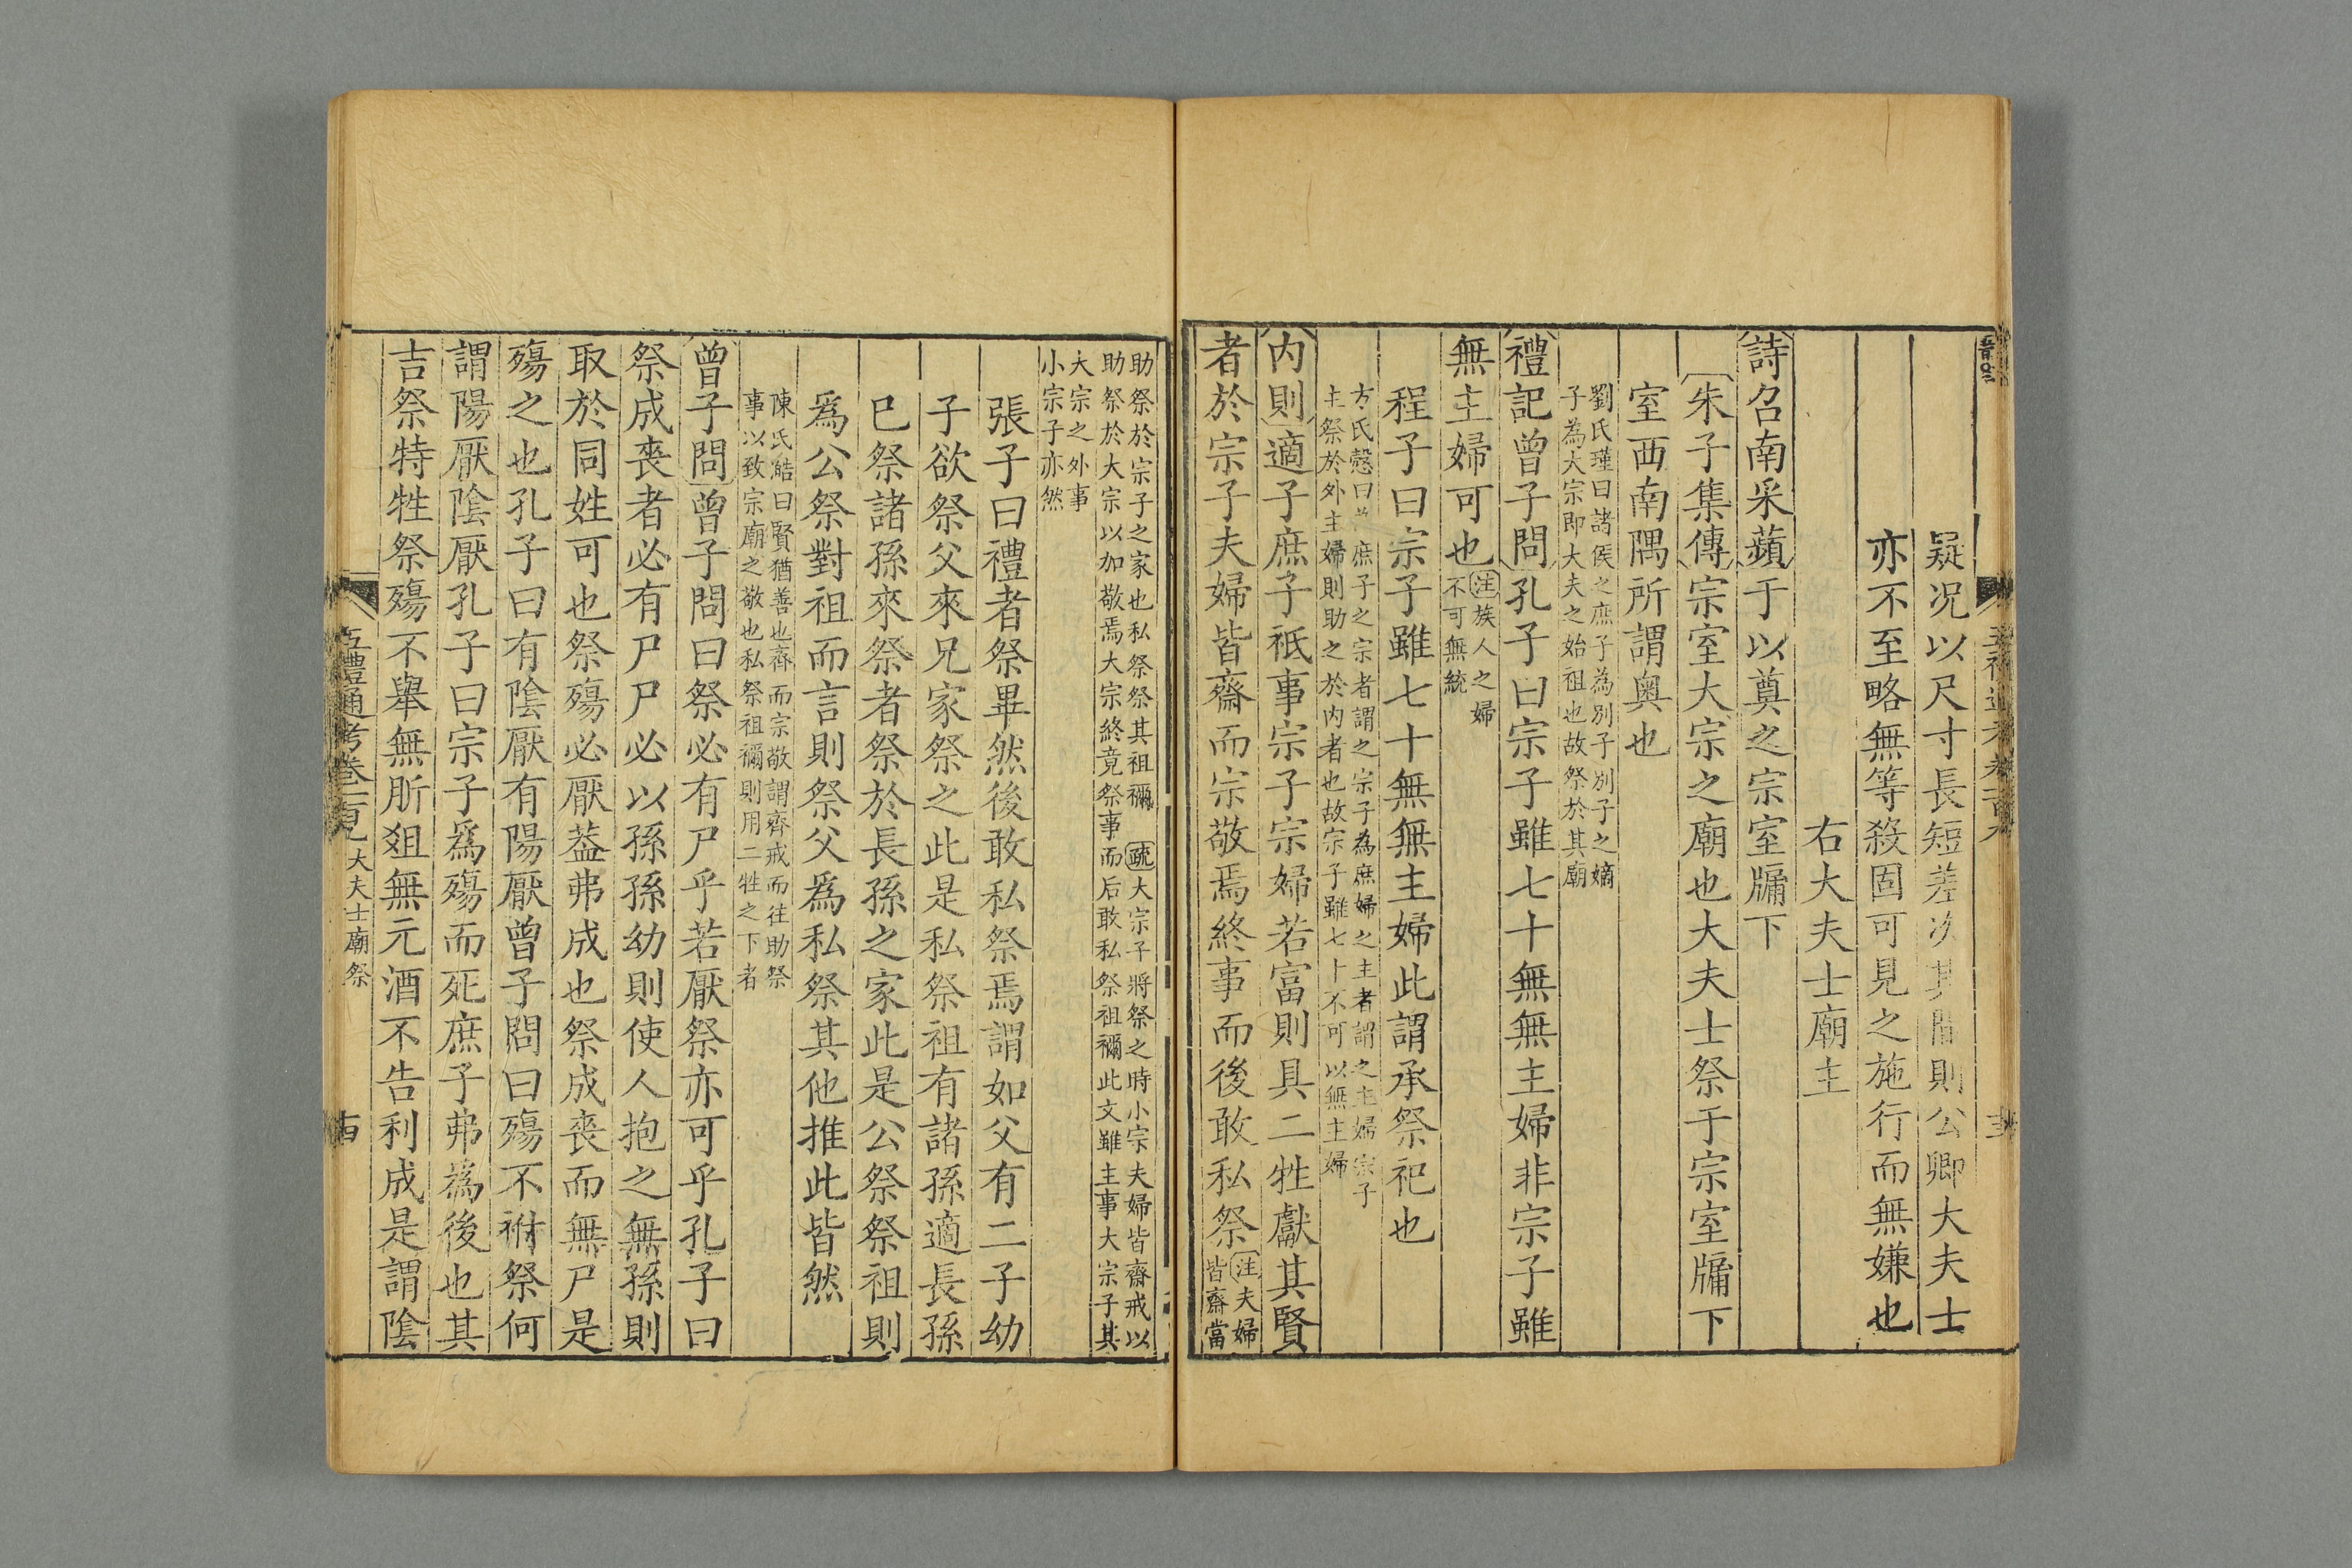 疑況以尺寸長短差次其間則公卿大夫士
亦不至略無等殺固可見之施行而無嫌也
右大夫士廟主
詩召南采蘋于以奠之宗室牖下
朱子集傳宗室大宗之廟也大夫士祭于宗室牖下
室西南隅所謂奥也
劉氏瑾曰諸侯之庶子為別子別子之嫡
子為大宗即大夫之始祖也故祭於其廟
禮記曾子問孔子曰宗子雖七十無無主婦非宗子雖
無主婦可也注族人之婦
不可無統
程子曰宗子雖七十無無主婦此謂承祭祀也
方氏慤曰 庶子之宗者謂之宗子為庶婦之主者謂之主婦宗子
主祭於外主婦則助之於内者也故宗子雖七十不可以無主婦
内則適子庶子祗事宗子宗婦若富則具二牲獻其賢
者於宗子夫婦皆齋而宗敬焉終事而後敢私祭注夫婦
皆齋當
助祭於宗子之家也私祭祭其祖禰 疏大宗子將祭之時小宗夫婦皆齋戒以
助祭於大宗以加敬焉大宗終竟祭事而后敢私祭祖禰此文雖主事大宗子其
大宗之外事
小宗子亦然
張子曰禮者祭畢然後敢私祭焉謂如父有二子幼
子欲祭父來兄家祭之此是私祭祖有諸孫適長孫
已祭諸孫來祭者祭於長孫之家此是公祭祭祖則
爲公祭對祖而言則祭父爲私祭其他推此皆然
陳氏皓曰賢猶善也齊而宗敬謂齊戒而往助祭
事以致宗廟之敬也私祭祖禰則用二牲之下者
曾子問曾子問曰祭必有尸乎若厭祭亦可乎孔子曰
祭成喪者必有尸尸必以孫孫幼則使人抱之無孫則
取於同姓可也祭殤必厭蓋弗成也祭成喪而無尸是
殤之也孔子曰有陰厭有陽厭曾子問曰殤不祔祭何
謂陽厭陰厭孔子曰宗子爲殤而死庶子弗爲後也其
吉祭特牲祭殤不舉無肵俎無元酒不告利成是謂陰
五禮通考卷一百九 大夫士廟祭 十四